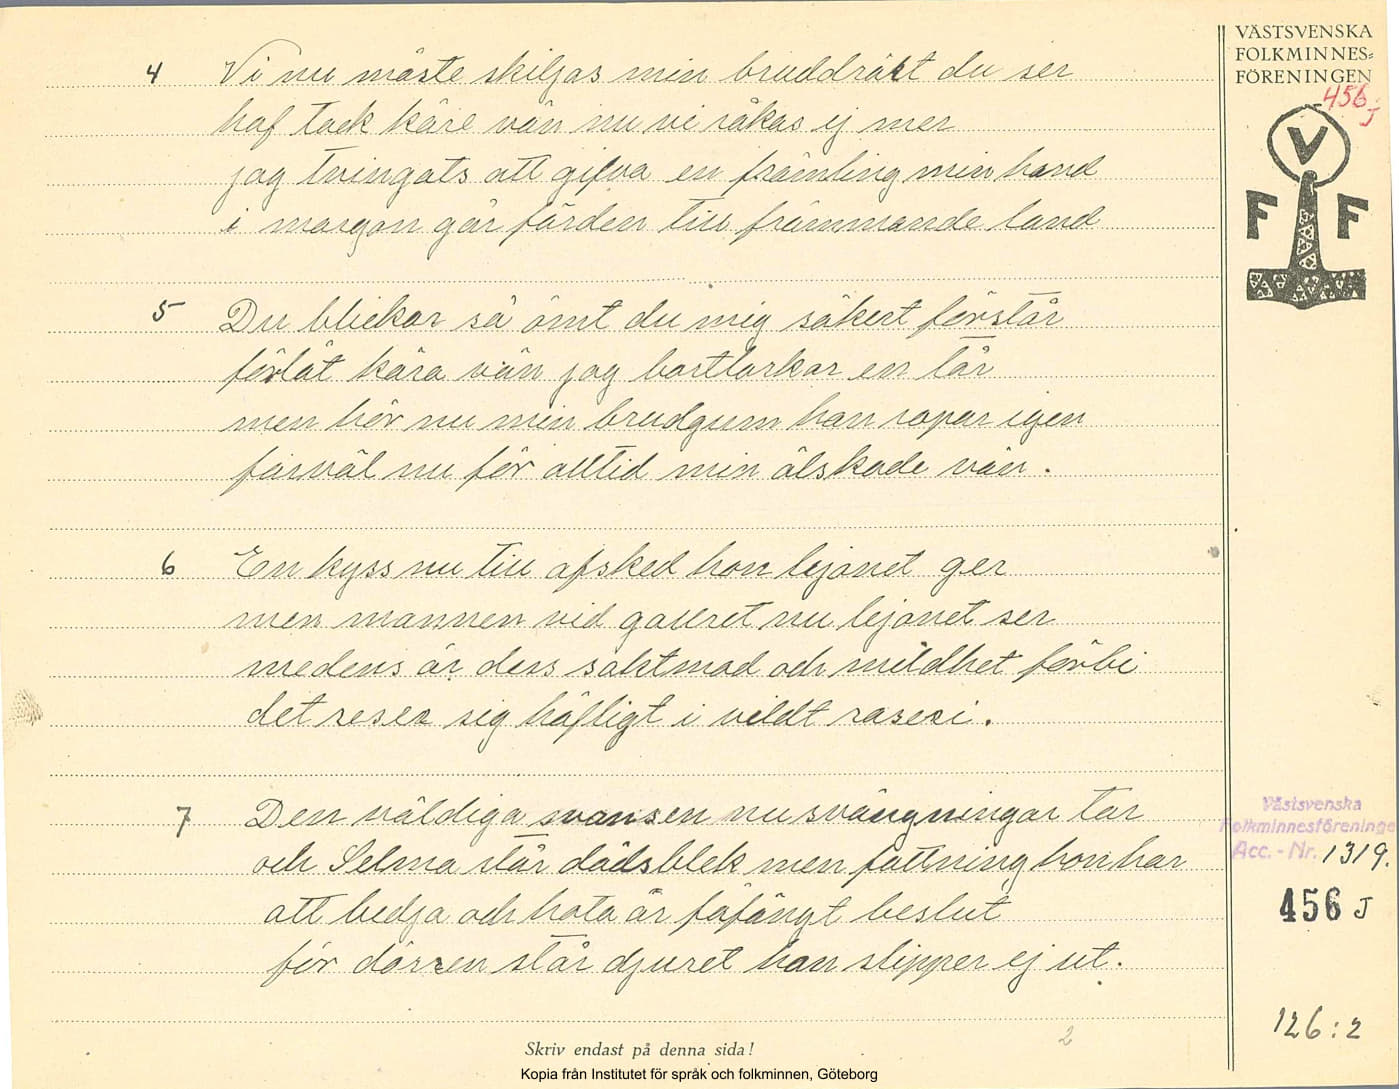 VÄSTSVENSKA
FOLKMINNES=
FÖRENINGEN
456 J
V
F F
4 Vi nu måste skiljas min bruddräkt du ser
haf tack käre vän nu vi råkas ej mer
jag tvingats att gifva en främling min hand
i morgon går färden till främmande land
5 Du blickar så ömt du mig säkert förstår
förlåt kära vän jag borttorkar en tår
men hör nu min brudgum han ropar igen
farväl nu för alltid min älskade vän.
6 En kyss nu till afsked hon lejonet ger
men mannen vid gallret nu lejonet ser
medens är dess saktmod och mildhet förbi
det reser sig häftigt i vildt raseri.
7 Den väldiga svansen nu svängningar tar
och Selma står dödsblek men fattning hon har
att bedja och hota är fåfängt beslut
för dörren står djuret hon slipper ej ut.
Västsvenska
Folkminnesföreninge
Acc. - Nr. 1319.
456 J
126:2
2
Skriv endast på denna sida!
Kopia från Institutet för språk och folkminnen, Göteborg